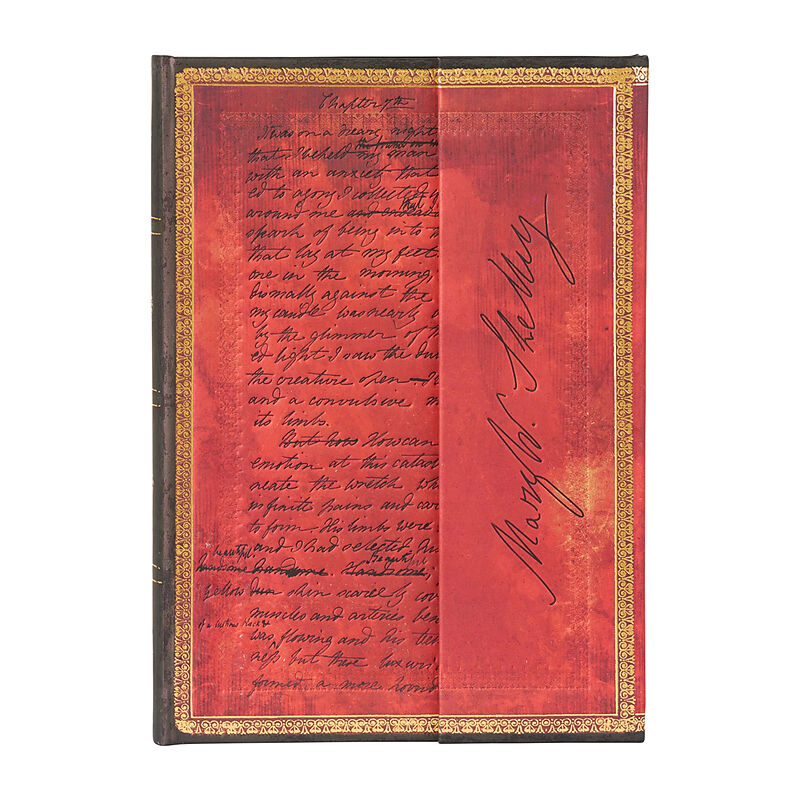 Chapter 7th
It was on a dreary night
the frame on wh
that I beheld my man
with an anxiety that
ed to agony I collected
around me and endea
that
spark of being into
that lay at my feet.
one in the morning,
dismally against the
my candle was nearly
by the glimmer of
ed light I saw the du
the creature open — I
and a convulsive m
its limbs.
But how How can
emotion at this catas
neate the wretch wh
infinite pains and car
to form. His limbs were
and I had selected
beautiful. beautiful
handsome. Handsome;
yellow dun skin scarcely cov
muscles and arteries ben
of a lustrous black &
was flowing and his tee
ness but these luxuri
formed a more horrid
Mary W. Shelley